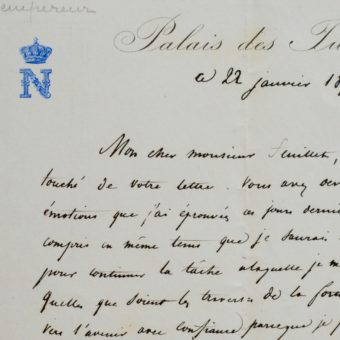 empereur
N
Palais des Tu
ce 22 janvier 18
Mon cher monsieur Feuillet,
touché de votre lettre. Vous avez de
émotions que j'ai éprouvées ces jours derni
compris en même tems que je saurais
pour continuer la tâche à laquelle je m
Quelles que soient les traverses de la for
vers l'avenir avec confiance parceque je p